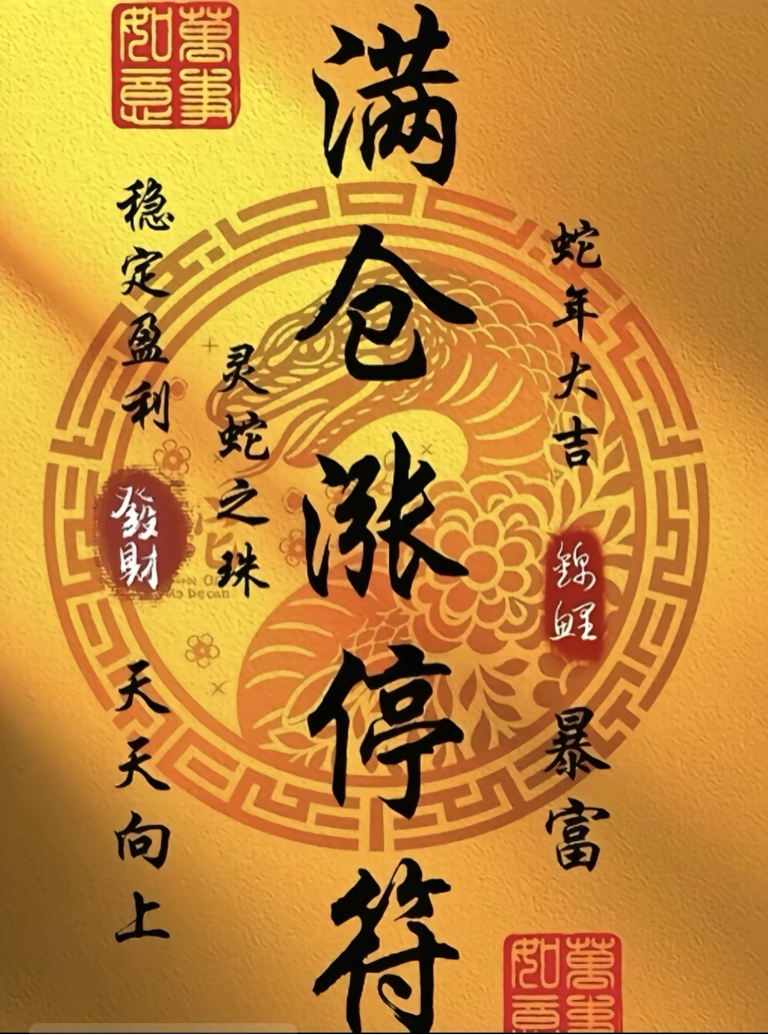 萬事如意
蛇年大吉
錦鯉
暴富
满仓涨停符
灵蛇之珠
稳定盈利
發財
天天向上
萬事如意